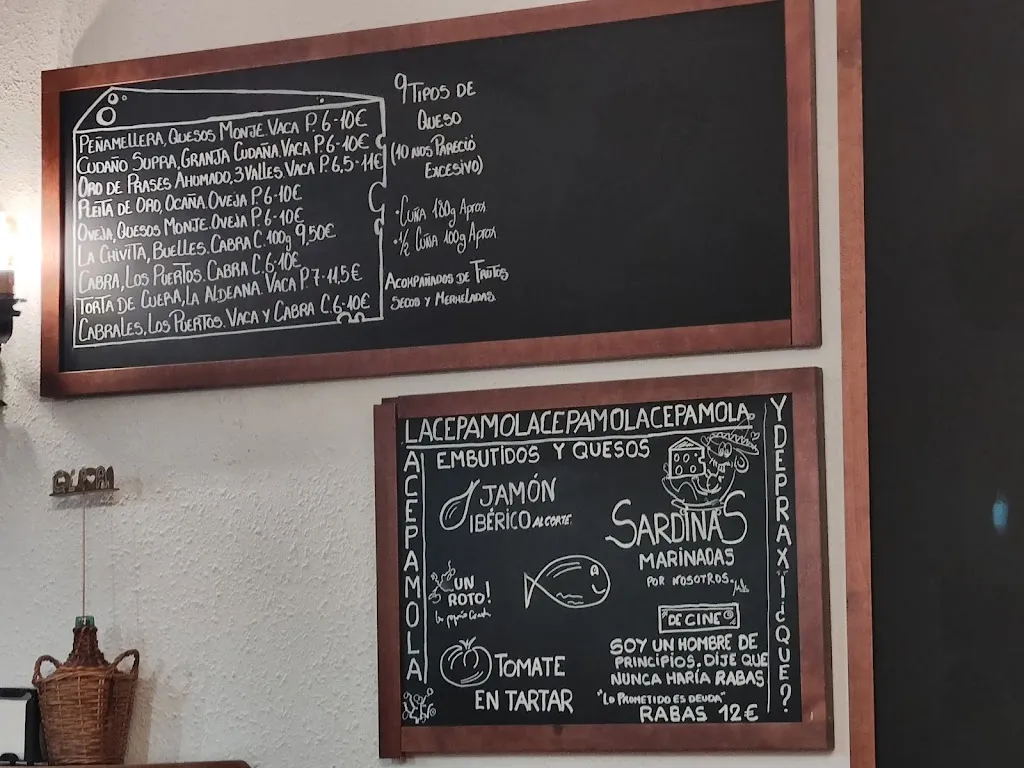 PEÑAMELLERA, QUESOS MONJE. VACA P. 6-10€
CUDAÑO SUPRA, GRANJA CUDAÑA. VACA P. 6-10€
ORO DE PRASES AHUMADO, 3 VALLES. VACA P. 6,5-11€
PLEITA DE ORO, OCAÑA. OVEJA P. 6-10€
OVEJA, QUESOS MONJE. OVEJA P. 6-10€
LA CHIVITA, BUELLES. CABRA C. 100g 9,50€
CABRA, LOS PUERTOS. CABRA C. 6-10€
TORTA DE CUERA, LA ALDEANA. VACA P. 7-11,5€
CABRALES, LOS PUERTOS. VACA Y CABRA C. 6-10€
9 TIPOS DE
QUESO
(10 NOS PARECIÓ
EXCESIVO)
·CUÑA 180g APROX
·½ CUÑA 100g APROX
ACOMPAÑADOS DE FRUTOS
SECOS Y MERMELADAS.
LACEPAMOLACEPAMOLACEPAMOLA
LACEPAMOLA
EMBUTIDOS Y QUESOS
JAMÓN
IBÉRICO AL CORTE.
UN
ROTO!
TOMATE
EN TARTAR
SARDINAS
MARINADAS
POR NOSOTROS.
"DE CINE"
SOY UN HOMBRE DE
PRINCIPIOS, DIJE QUE
NUNCA HARÍA RABAS
"LO PROMETIDO ES DEUDA"
RABAS 12€
YDEPRAXI¿QUE?